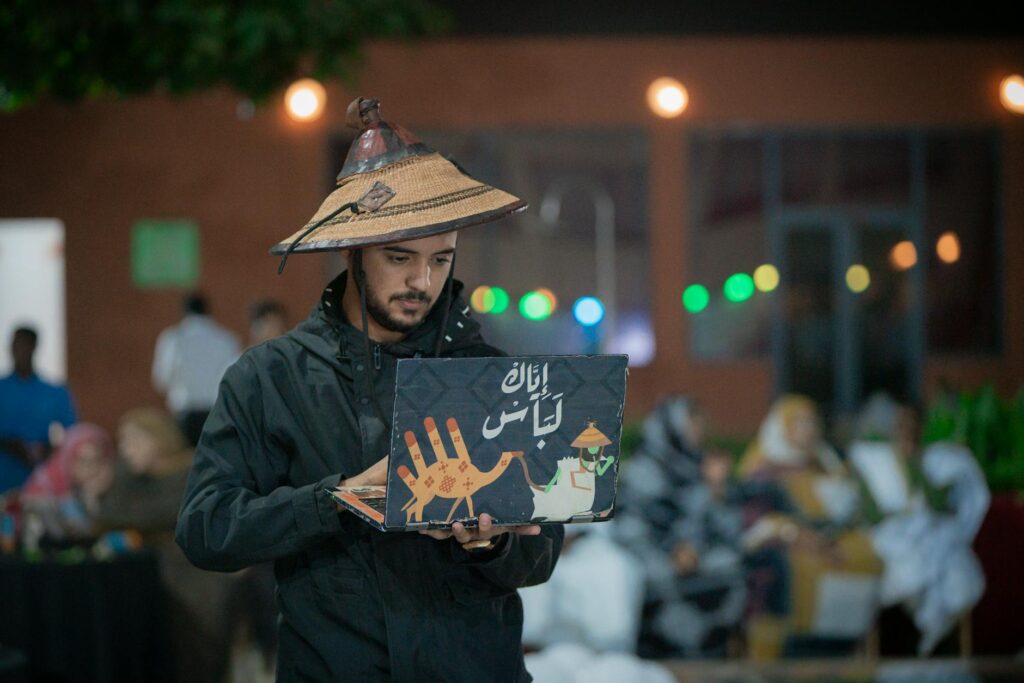 إيّاك
لَبَآسْ